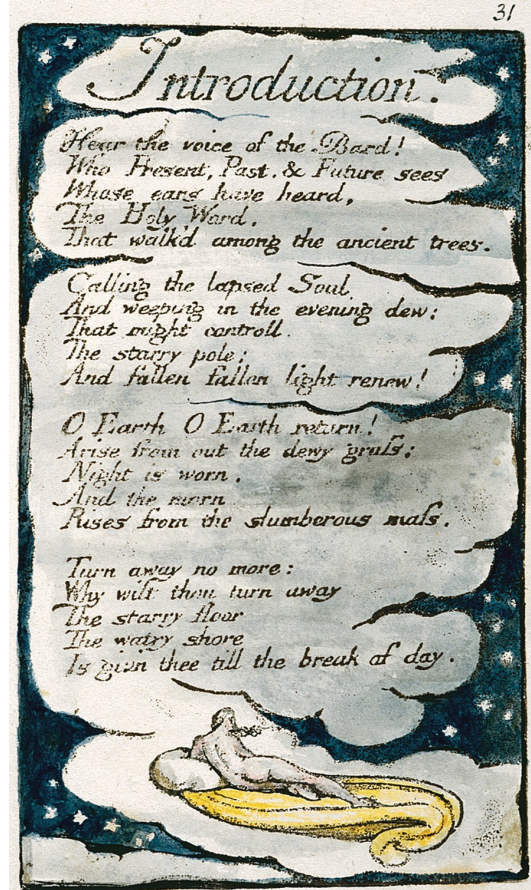 31
Introduction.
Hear the voice of the Bard!
Who Present, Past, & Future sees
Whose ears have heard,
The Holy Word,
That walk'd among the ancient trees.
Calling the lapsed Soul
And weeping in the evening dew:
That might controll.
The starry pole;
And fallen fallen light renew!
O Earth O Earth return!
Arise from out the dewy graſs;
Night is worn,
And the morn
Rises from the slumberous maſs.
Turn away no more:
Why wilt thou turn away
The starry floor
The watry shore
Is givn thee till the break of day.